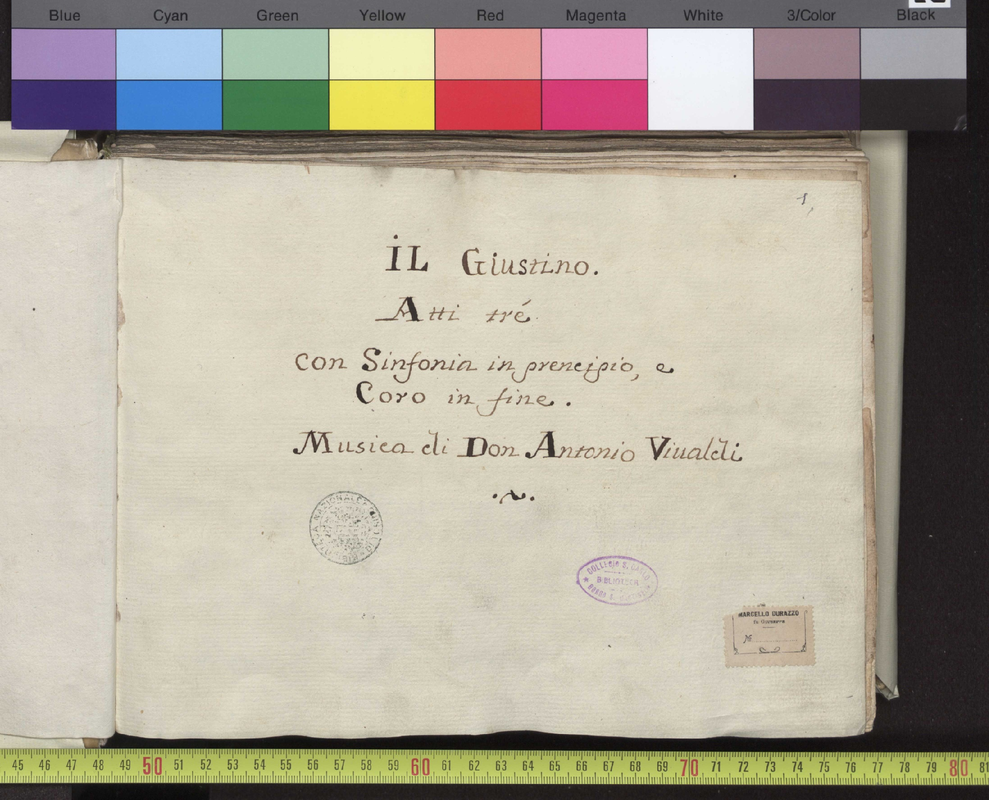 Blue Cyan Green Yellow Red Magenta White 3/Color Black
1,
iL Giustino.
Atti tré
con Sinfonia in prencipio, e
Coro in fine.
Musica di Don Antonio Viualdi
NAZIONALE
COLLEGIO S. CARLO
BIBLIOTECA
BORGO S.
MARCELLO DURAZZO
Di Giovanni
45 46 47 48 49 50 51 52 53 54 55 56 57 58 59 60 61 62 63 64 65 66 67 68 69 70 71 72 73 74 75 76 77 78 79 80 81